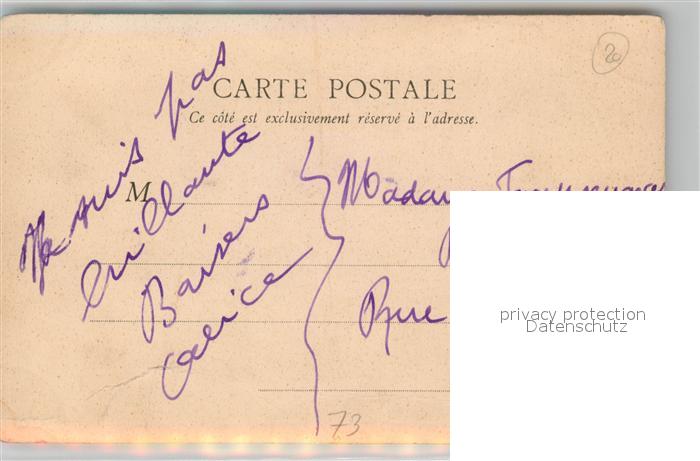 20
CARTE POSTALE
Ce côté est exclusivement réservé à l'adresse.
M.
suis pas
brillante
Baisers
Alice
Madame
Rue
73
privacy protection
Datenschutz